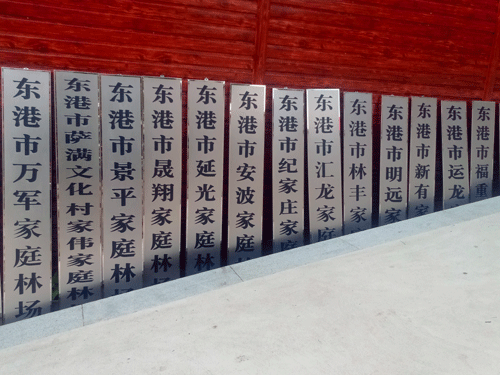 东港市万军家庭林场
东港市萨满文化村家伟家庭林
东港市景平家庭林场
东港市晟翔家庭林
东港市延光家庭林
东港市安波家庭林
东港市纪家庄家庭
东港市汇龙家庭
东港市林丰家庭
东港市明远家
东港市新有家
东港市运龙
东港市福重